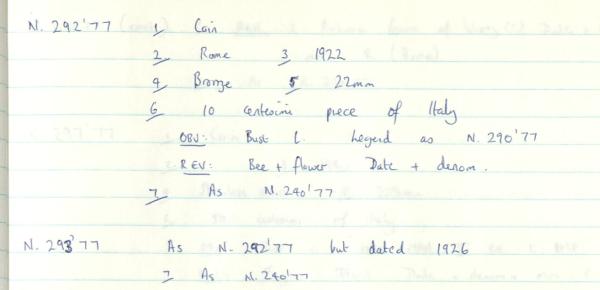 N. 292'77 1 Coin
2 Rome 3 1922
4 Bronze 5 22mm
6 10 centesimi piece of Italy
OBV: Bust l. Legend as N. 290'77
REV: Bee + flower Date + denom.
7 As N. 240'77
N. 293'77 As N. 292'77 but dated 1926
7 As N. 240'77